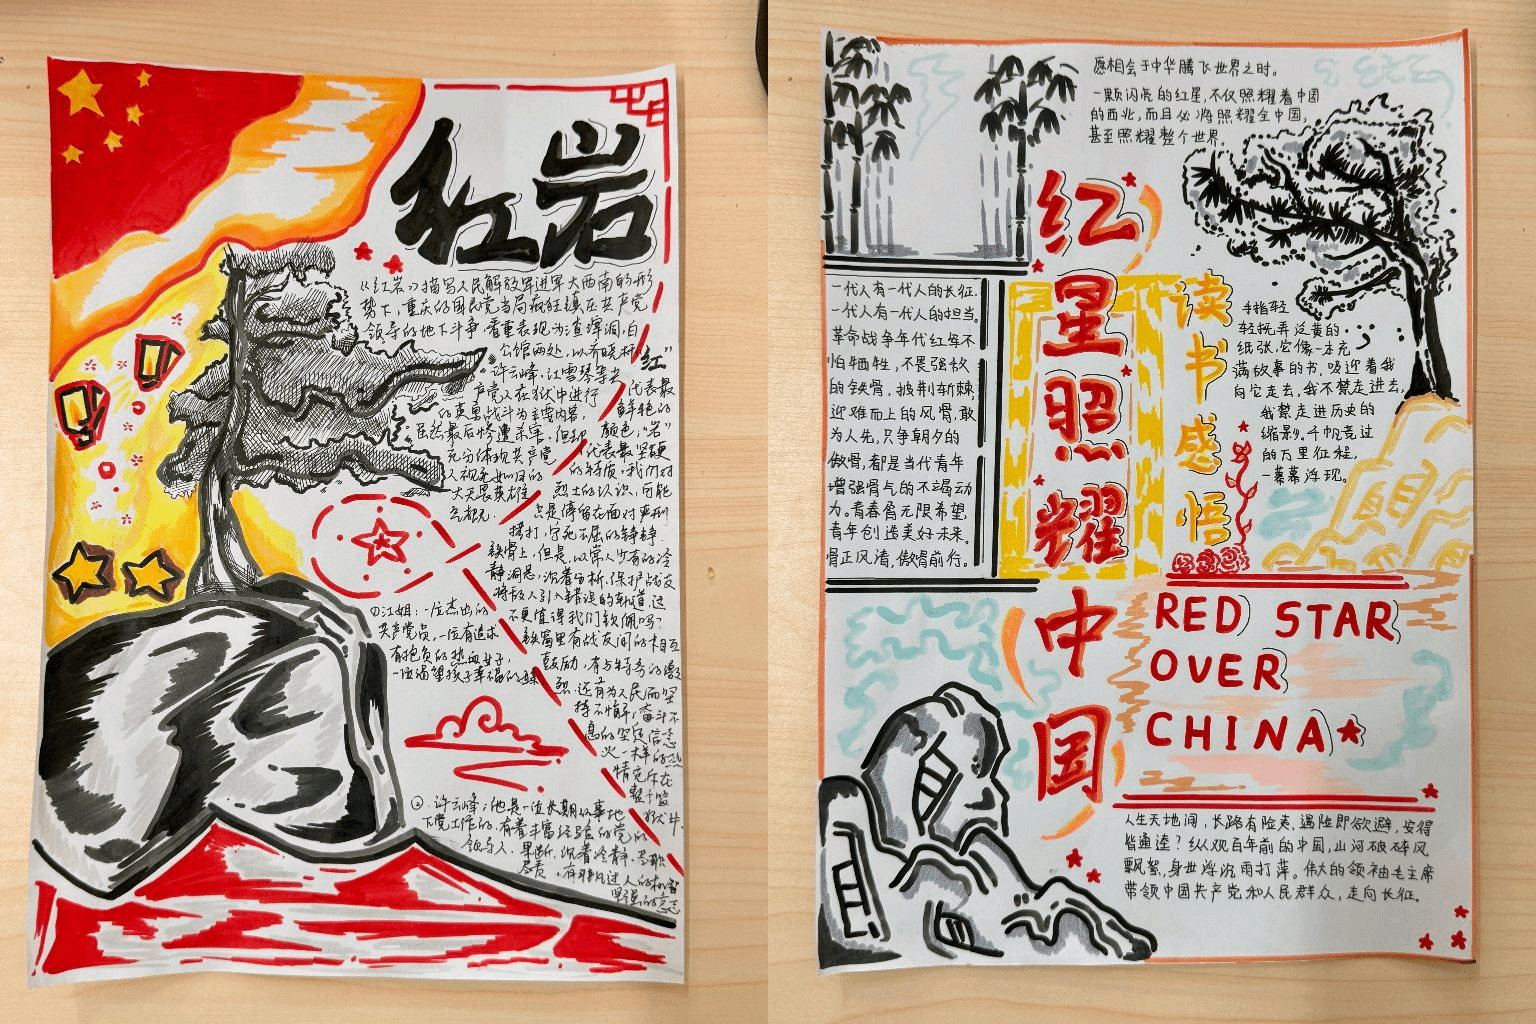 红岩
《红岩》描写人民解放军进军大西南的形
势下,重庆的国民党当局疯狂镇压共产党
领导的地下斗争,着重表现为渣滓洞、白
公馆两处,以齐晓轩、
许云峰、江雪琴等共
产党人在狱中进行
的英勇战斗为主要内容,
虽然最后惨遭杀害,但却
充分体现共产党
人视死如归的
大无畏英雄
气概。
“红”
代表最
鲜艳的
颜色,“岩”
代表最坚硬
的特质,我们对
烈士的认识,可能
只是停留在面对严刑
拷打,宁死不屈的铮铮
铁骨上,但是,以常人少有的冷
静洞悉,沉着分析,保护战友
将敌人引入错误的轨道,这
不更值得我们钦佩吗?
铁窗里有战友间的相互
鼓励,有与特务的激
烈,还有为人民而坚
持不懈,奋斗不
息的坚定信念
火一样的热
情充斥在
整个监
狱中
①江姐:一位杰出的
共产党员,一位有追求
有抱负的热血女子,
一位渴望孩子幸福的母亲
②.许云峰:他是一位长期从事地
下党工作的,有着丰富经验的党的
领导人,果断、沉着冷静、忠职
尽责,有着过人的机智
坚强的意志
愿相会于中华腾飞世界之时。
一颗闪亮的红星,不仅照耀着中国
的西北,而且必将照耀全中国,
甚至照耀整个世界。
红星照耀中国
读书感悟
一代人有一代人的长征,
一代人有一代人的担当。
革命战争年代红军不
怕牺牲,不畏强敌
的铁骨,披荆斩棘,
迎难而上的风骨,敢
为人先,只争朝夕的
傲骨,都是当代青年
增强骨气的不竭动
力。青春孕无限希望,
青年创造美好未来。
骨正风清,傲骨前行。
手指轻
轻抚弄泛黄的
纸张,它像一本充
满故事的书,吸迎着我
向它走去,我不禁走进去,
我禁走进历史的
缩影。千帆竞过
的万里征程,
一幕幕浮现。
RED STAR
OVER
CHINA
人生天地间,长路有险夷,遇险即欲避,安得
皆通逵?纵观百年前的中国,山河破碎风
飘絮,身世浮沉雨打萍。伟大的领袖毛主席
带领中国共产党和人民群众,走向长征。